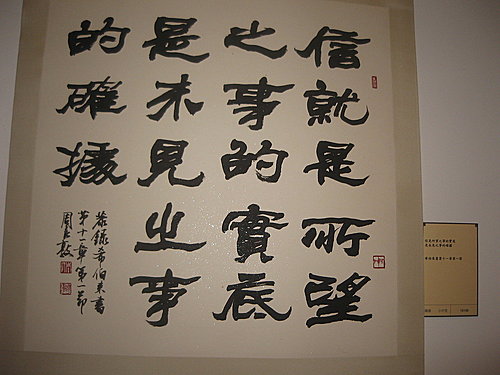 信就是所望
之事的實底
是未見之事
的確據
恭錄希伯来書
第十一章第一節
周